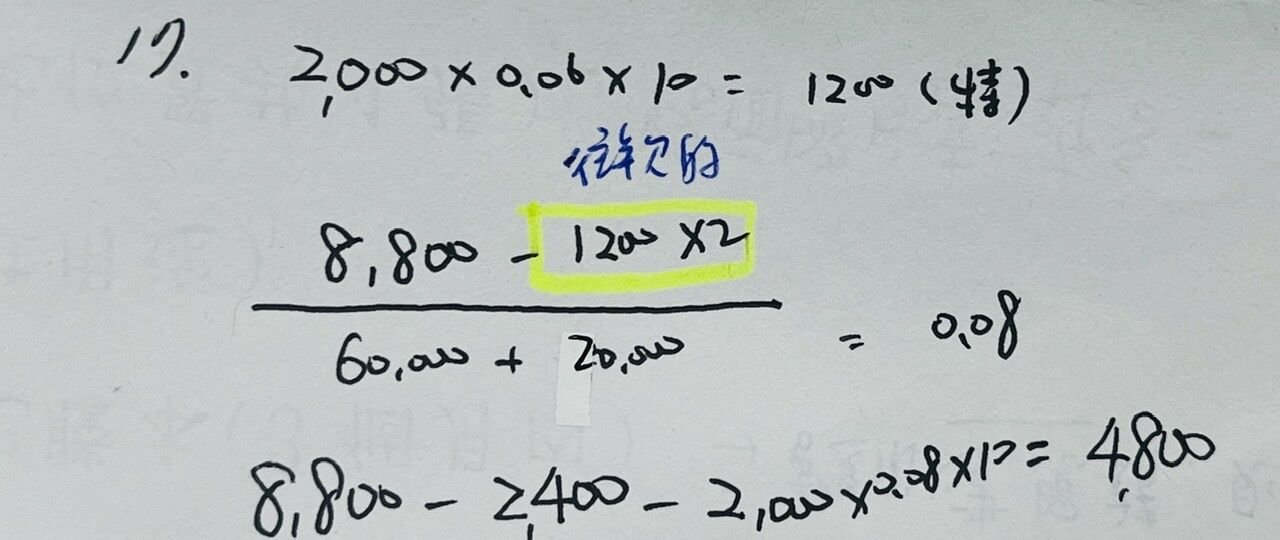 17. 2,000 × 0.06 × 10 = 1200 (特)
往年欠的
8,800 - 1200 ×2
60,000 + 20,000
= 0.08
8,800 - 2,400 - 2,000×0.08×10 = 4,800